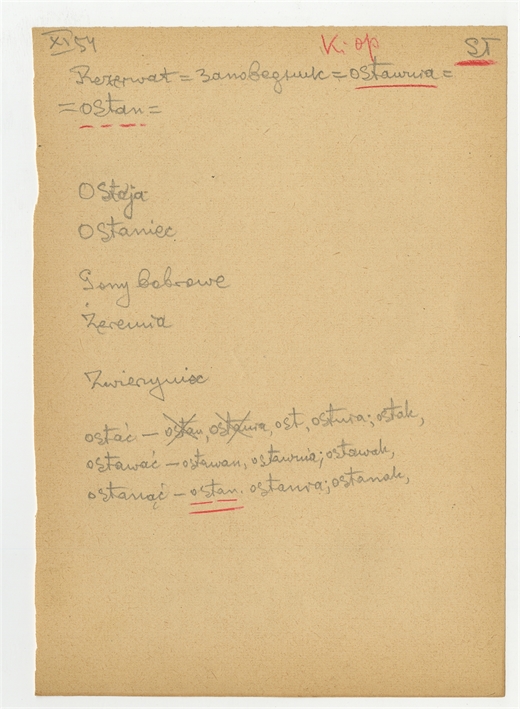 XI 54 K. op ST
Rezerwat = заповедник = ostawnia =
= ostan =
Ostoja
Ostaniec
Gony bobrowe
Żeremia
Zwierzyniec
ostać – ostan, ostania, ost, ostnia; ostak,
ostawać – ostawan, ostawnia; ostawak,
ostanąć – ostan. ostania; ostanak,